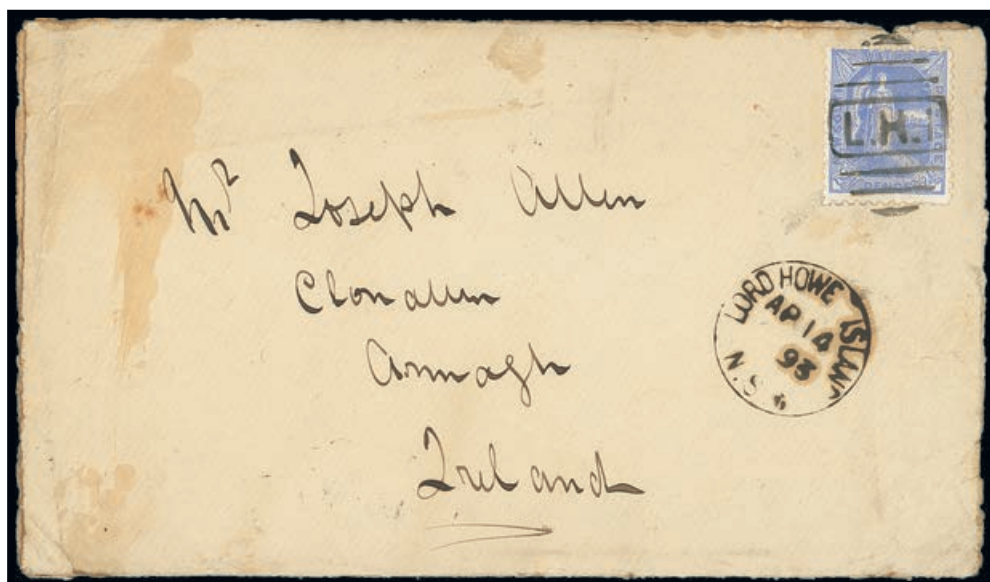 L.H.I
Mr Joseph Allen
Clonallen
Armagh
Ireland
LORD HOWE ISLAND
AP 14
93
N.S